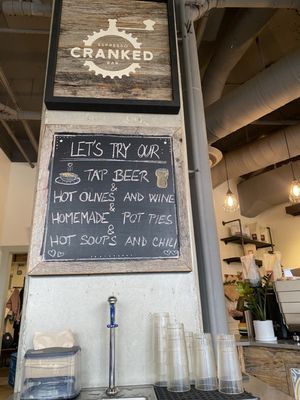 ESPRESSO
CRANKED
BAR
LET'S TRY OUR:
TAP BEER
&
HOT OLIVES AND WINE
&
HOMEMADE POT PIES
&
HOT SOUP'S AND CHILI